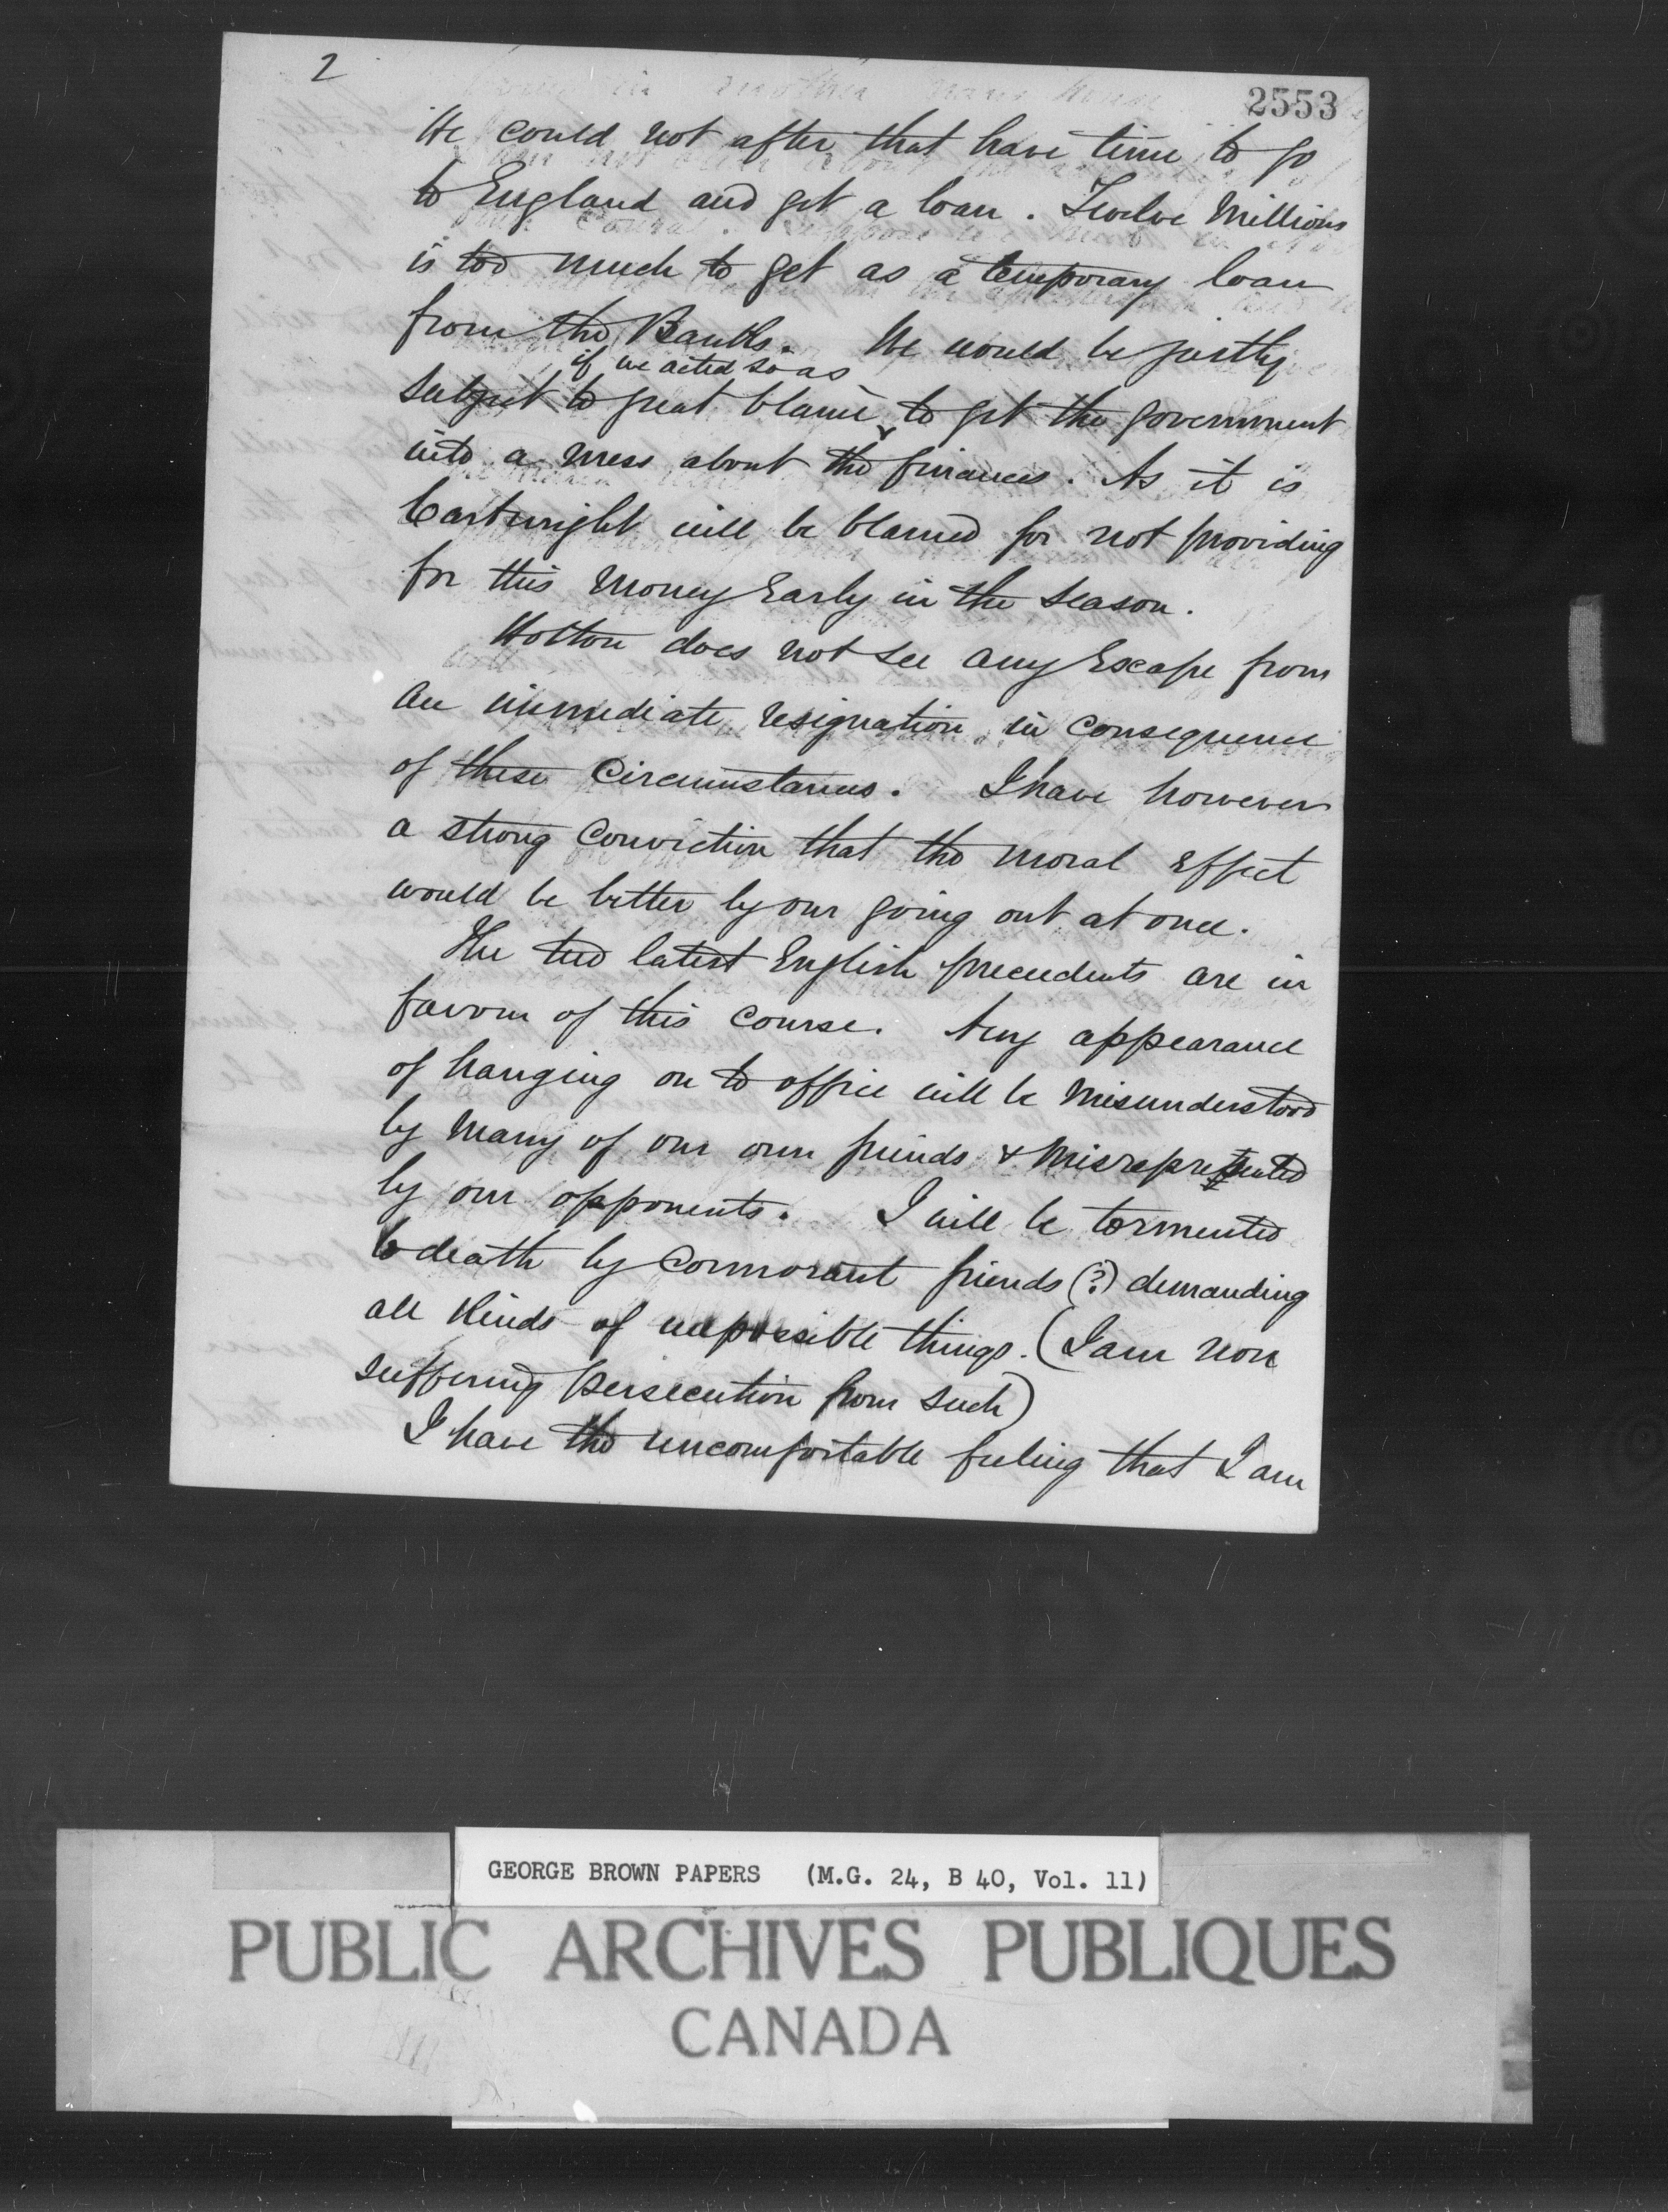 2
2553
He could not after that have time to go
to England and get a loan. Twelve Millions
is too much to get as a temporary loan
from the Banks. We would be justly
if we acted so as
subject to great blame to get the government
into a mess about the finances. As it is
Cartwright will be blamed for not providing
for this Money Early in the Season.
Holton does not see any Escape from
an immediate resignation in consequence
of these Circumstances. I have however
a strong Conviction that the moral effect
would be better by our going out at once.
The two latest English precedents are in
favour of this course. Any appearance
of hanging on to office will be Misunderstood
by Many of our own friends & Misrepresented
by our opponents. I will be tormented
to death by Cormorant friends (?) demanding
all Kinds of impossible things. (I am now
suffering persecution from such)
I have the uncomfortable feeling that I am
GEORGE BROWN PAPERS (M.G. 24, B 40, Vol. 11)
PUBLIC ARCHIVES PUBLIQUES
CANADA